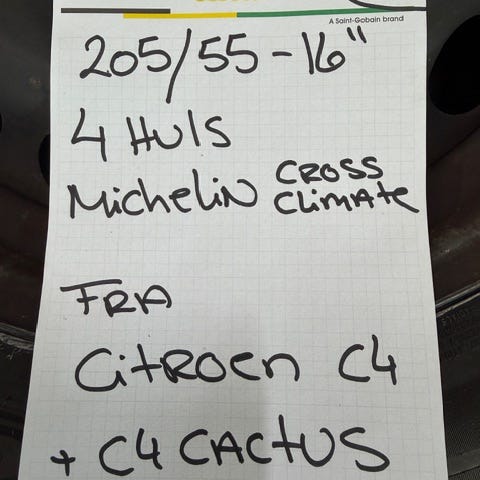 A Saint-Gobain brand
205/55-16"
4 HulS
Michelin CROSS CLiMAte
FRA
CitROEn C4
+ C4 CACtUS